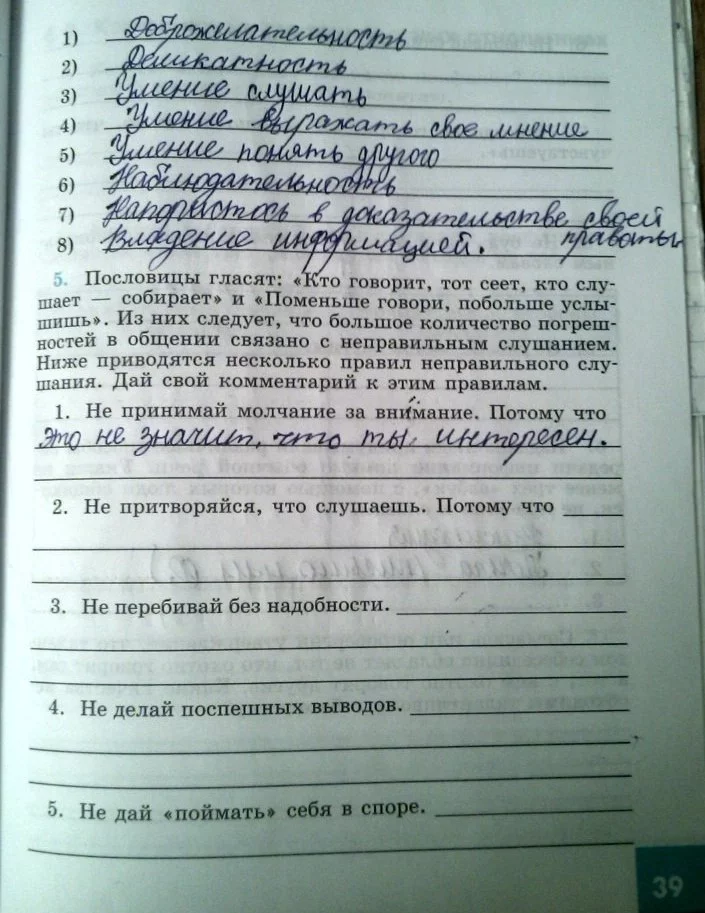 1) Доброжелательность
2) Деликатность
3) Умение слушать
4) Умение выражать свое мнение
5) Умение понять другого
6) Наблюдательность
7) Напористось в доказательстве своей
правоты
8) Владение информацией.
5. Пословицы гласят: «Кто говорит, тот сеет, кто слу-
шает — собирает» и «Поменьше говори, побольше услы-
шишь». Из них следует, что большое количество погреш-
ностей в общении связано с неправильным слушанием.
Ниже приводятся несколько правил неправильного слу-
шания. Дай свой комментарий к этим правилам.
1. Не принимай молчание за внимание. Потому что
это не значит, что ты интересен.
2. Не притворяйся, что слушаешь. Потому что
3. Не перебивай без надобности.
4. Не делай поспешных выводов.
5. Не дай «поймать» себя в споре.
39